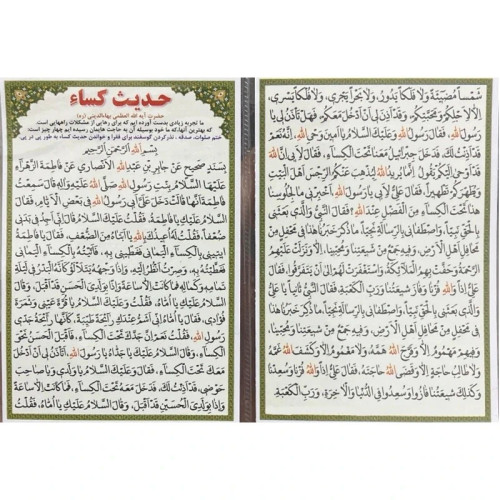 حديث كساء
حضرت آیه الله العظمی بهاءالدینی (ره)
ما تجربه زیادی بدست آورده ایم که برای رهایی از مشکلات راههایی است
که بهترین آنهاکه ما خود بوسیله آن به حاجت هایمان رسیده ایم چهار چیز است:
ختم صلوات، صدقه ، نذر کردن گوسفند برای فقرا و خواندن حدیث کساء به طور پی در پی
بِسْمِ اللهِ الرَّحْمنِ الرَّحيمِ
بِسَنَدٍ صَحيحٍ عَنْ جابِرِ بْنِ عَبْدِاللهِ الْاَنْصارِي عَنْ فاطِمَةَ الزَّهْراءِ
عَلَيْهَا السَّلامُ بِنْتِ رَسُولِ اللهِ صَلَّى اللهُ عَلَيْهِ وَالِهِ قالَ سَمِعْتُ
فاطِمَةَ اَنَّها قالَتْ دَخَلَ عَلَيَّ اَبي رَسُولُ اللهِ في بَعْضِ الْاَيّامِ، فَقالَ
السَّلامُ عَلَيْكِ يا فاطِمَةُ، فَقُلْتُ عَلَيْكَ السَّلامُ قالَ اِنّي اَجِدُ في بَدَني
ضُعْفاً، فَقُلْتُ لَهُ اُعيذُكَ بِاللهِ يا اَبَتاهُ مِنَ الضُّعْفِ، فَقالَ يا فاطِمَةُ
ايتيني بِالْكِساءِ الْيَماني فَغَطّيني بِهِ، فَاَتَيْتُهُ بِالْكِساءِ الْيَماني
فَغَطَّيْتُهُ بِهِ، وَصِرْتُ اَنْظُرُ اِلَيْهِ، وَاِذا وَجْهُهُ يَتَلَاْلَؤُ كَاَنَّهُ الْبَدْرُ في لَيْلَةِ
تَمامِهِ وَكَمالِهِ فَما كانَتْ اِلّا ساعَةً وَاِذا بِوَلَدِيَ الْحَسَنِ قَدْ اَقْبَلَ، وَقالَ
السَّلامُ عَلَيْكِ يا اُمّاهُ، فَقُلْتُ وَعَلَيْكَ السَّلامُ يا قُرَّةَ عَيْني، وَثَمَرَةَ
فُؤادي، فَقالَ يا اُمّاهُ اِنّي اَشَمُّ عِنْدَكِ رائِحَةً طَيِّبَةً، كَاَنَّها رائِحَةُ جَدّي
رَسُولِ اللهِ، فَقُلْتُ نَعَمْ اِنَّ جَدَّكَ تَحْتَ الْكِساءِ، فَاَقْبَلَ الْحَسَنُ نَحْوَ
الْكِساءِ، وَقالَ السَّلامُ عَلَيْكَ يا جَدّاهُ يا رَسُولَ اللهِ، اَتَاْذَنُ لي اَنْ اَدْخُلَ
مَعَكَ تَحْتَ الْكِساءِ، فَقالَ وَعَلَيْكَ السَّلامُ يا وَلَدي وَيا صاحِبَ
حَوْضي، قَدْ اَذِنْتُ لَكَ، فَدَخَلَ مَعَهُ تَحْتَ الْكِساءِ، فَما كانَتْ اِلّا ساعَةً
وَاِذا بِوَلَدِيَ الْحُسَيْنِ قَدْ اَقْبَلَ، وَقالَ السَّلامُ عَلَيْكِ يا اُمّاهُ، فَقُلْتُ
شَمْساً مُضيئَةً وَلا فَلَكاً يَدُورُ، وَلا بَحْراً يَجْري، وَلا فُلْكاً يَسْري،
اِلّا لِاَجْلِكُمْ وَمَحَبَّتِكُمْ، وَقَدْ اَذِنَ لي اَنْ اَدْخُلَ مَعَكُمْ، فَهَلْ تَاْذَنُ لي يا
رَسُولَ اللهِ، فَقالَ رَسُولُ اللهِ وَعَلَيْكَ السَّلامُ يا اَمينَ وَحْيِ اللهِ، اِنَّهُ نَعَمْ
قَدْ اَذِنْتُ لَكَ، فَدَخَلَ جِبْرائيلُ مَعَنا تَحْتَ الْكِساءِ، فَقالَ لِاَبي اِنَّ اللهَ
قَدْ اَوْحى اِلَيْكُمْ يَقُولُ اِنَّما يُريدُ اللهُ لِيُذْهِبَ عَنْكُمُ الرِّجْسَ اَهْلَ الْبَيْتِ
وَيُطَهِّرَكُمْ تَطْهيراً، فَقالَ عَلِيٌّ لِاَبي يا رَسُولَ اللهِ اَخْبِرْني ما لِجُلُوسِنا
هذا تَحْتَ الْكِساءِ مِنَ الْفَضْلِ عِنْدَ اللهِ؟ فَقالَ النَّبِيُّ وَالَّذي بَعَثَني
بِالْحَقِّ نَبِيّاً، وَاصْطَفاني بِالرِّسالَةِ نَجِيّاً، ما ذُكِرَ خَبَرُنا هذا في مَحْفِلٍ مِنْ
مَحافِلِ اَهْلِ الْاَرْضِ، وَفيهِ جَمْعٌ مِنْ شيعَتِنا وَمُحِبّينا، اِلّا وَنَزَلَتْ عَلَيْهِمُ
الرَّحْمَةُ وَحَفَّتْ بِهِمُ الْمَلائِكَةُ، وَاسْتَغْفَرَتْ لَهُمْ اِلى اَنْ يَتَفَرَّقُوا، فَقالَ
عَلِيٌّ اِذاً وَاللهِ فُزْنا وَفازَ شيعَتُنا وَرَبِّ الْكَعْبَةِ، فَقالَ النَّبِيُّ ثانِياً يا عَلِيُّ
وَالَّذي بَعَثَني بِالْحَقِّ نَبِيّاً، وَاصْطَفاني بِالرِّسالَةِ نَجِيّاً، ما ذُكِرَ خَبَرُنا هذا
في مَحْفِلٍ مِنْ مَحافِلِ اَهْلِ الْاَرْضِ، وَفيهِ جَمْعٌ مِنْ شيعَتِنا وَمُحِبّينا،
وَفيهِمْ مَهْمُومٌ اِلّا وَفَرَّجَ اللهُ هَمَّهُ، وَلا مَغْمُومٌ اِلّا وَكَشَفَ اللهُ غَمَّهُ
وَلا طالِبُ حاجَةٍ اِلّا وَقَضَى اللهُ حاجَتَهُ، فَقالَ عَلِيٌّ اِذاً وَاللهِ فُزْنا وَسُعِدْنا
وَكَذلِكَ شيعَتُنا فازُوا وَسُعِدُوا فِي الدُّنْيا وَالْاخِرَةِ، وَرَبِّ الْكَعْبَةِ.